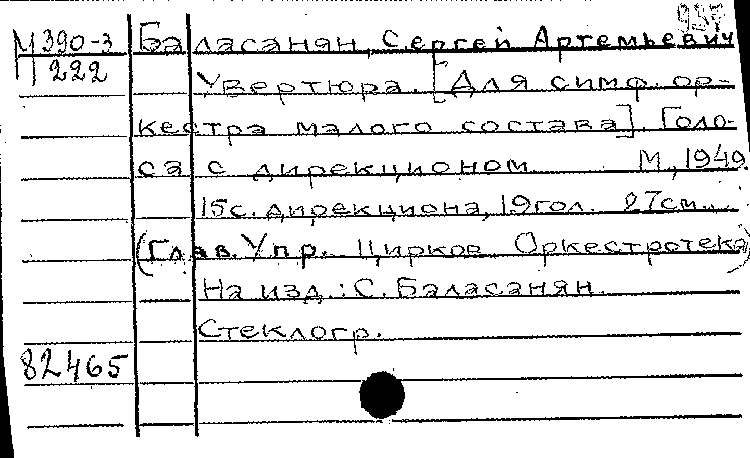 937
М390-3 Баласанян, Сергей Артемьевич
222 Увертюра. [Для симф. ор-
кестра малого состава]. Голо-
са с дирекционом. М., 1949.
15с. дирекциона, 19гол. 27см.
(Глав. Упр. Цирков. Оркестротека)
На изд.: С. Баласанян.
Стеклогр.
82465